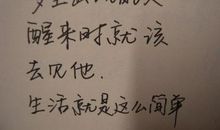 醒来时就该
去见他.
生活就是这么简单